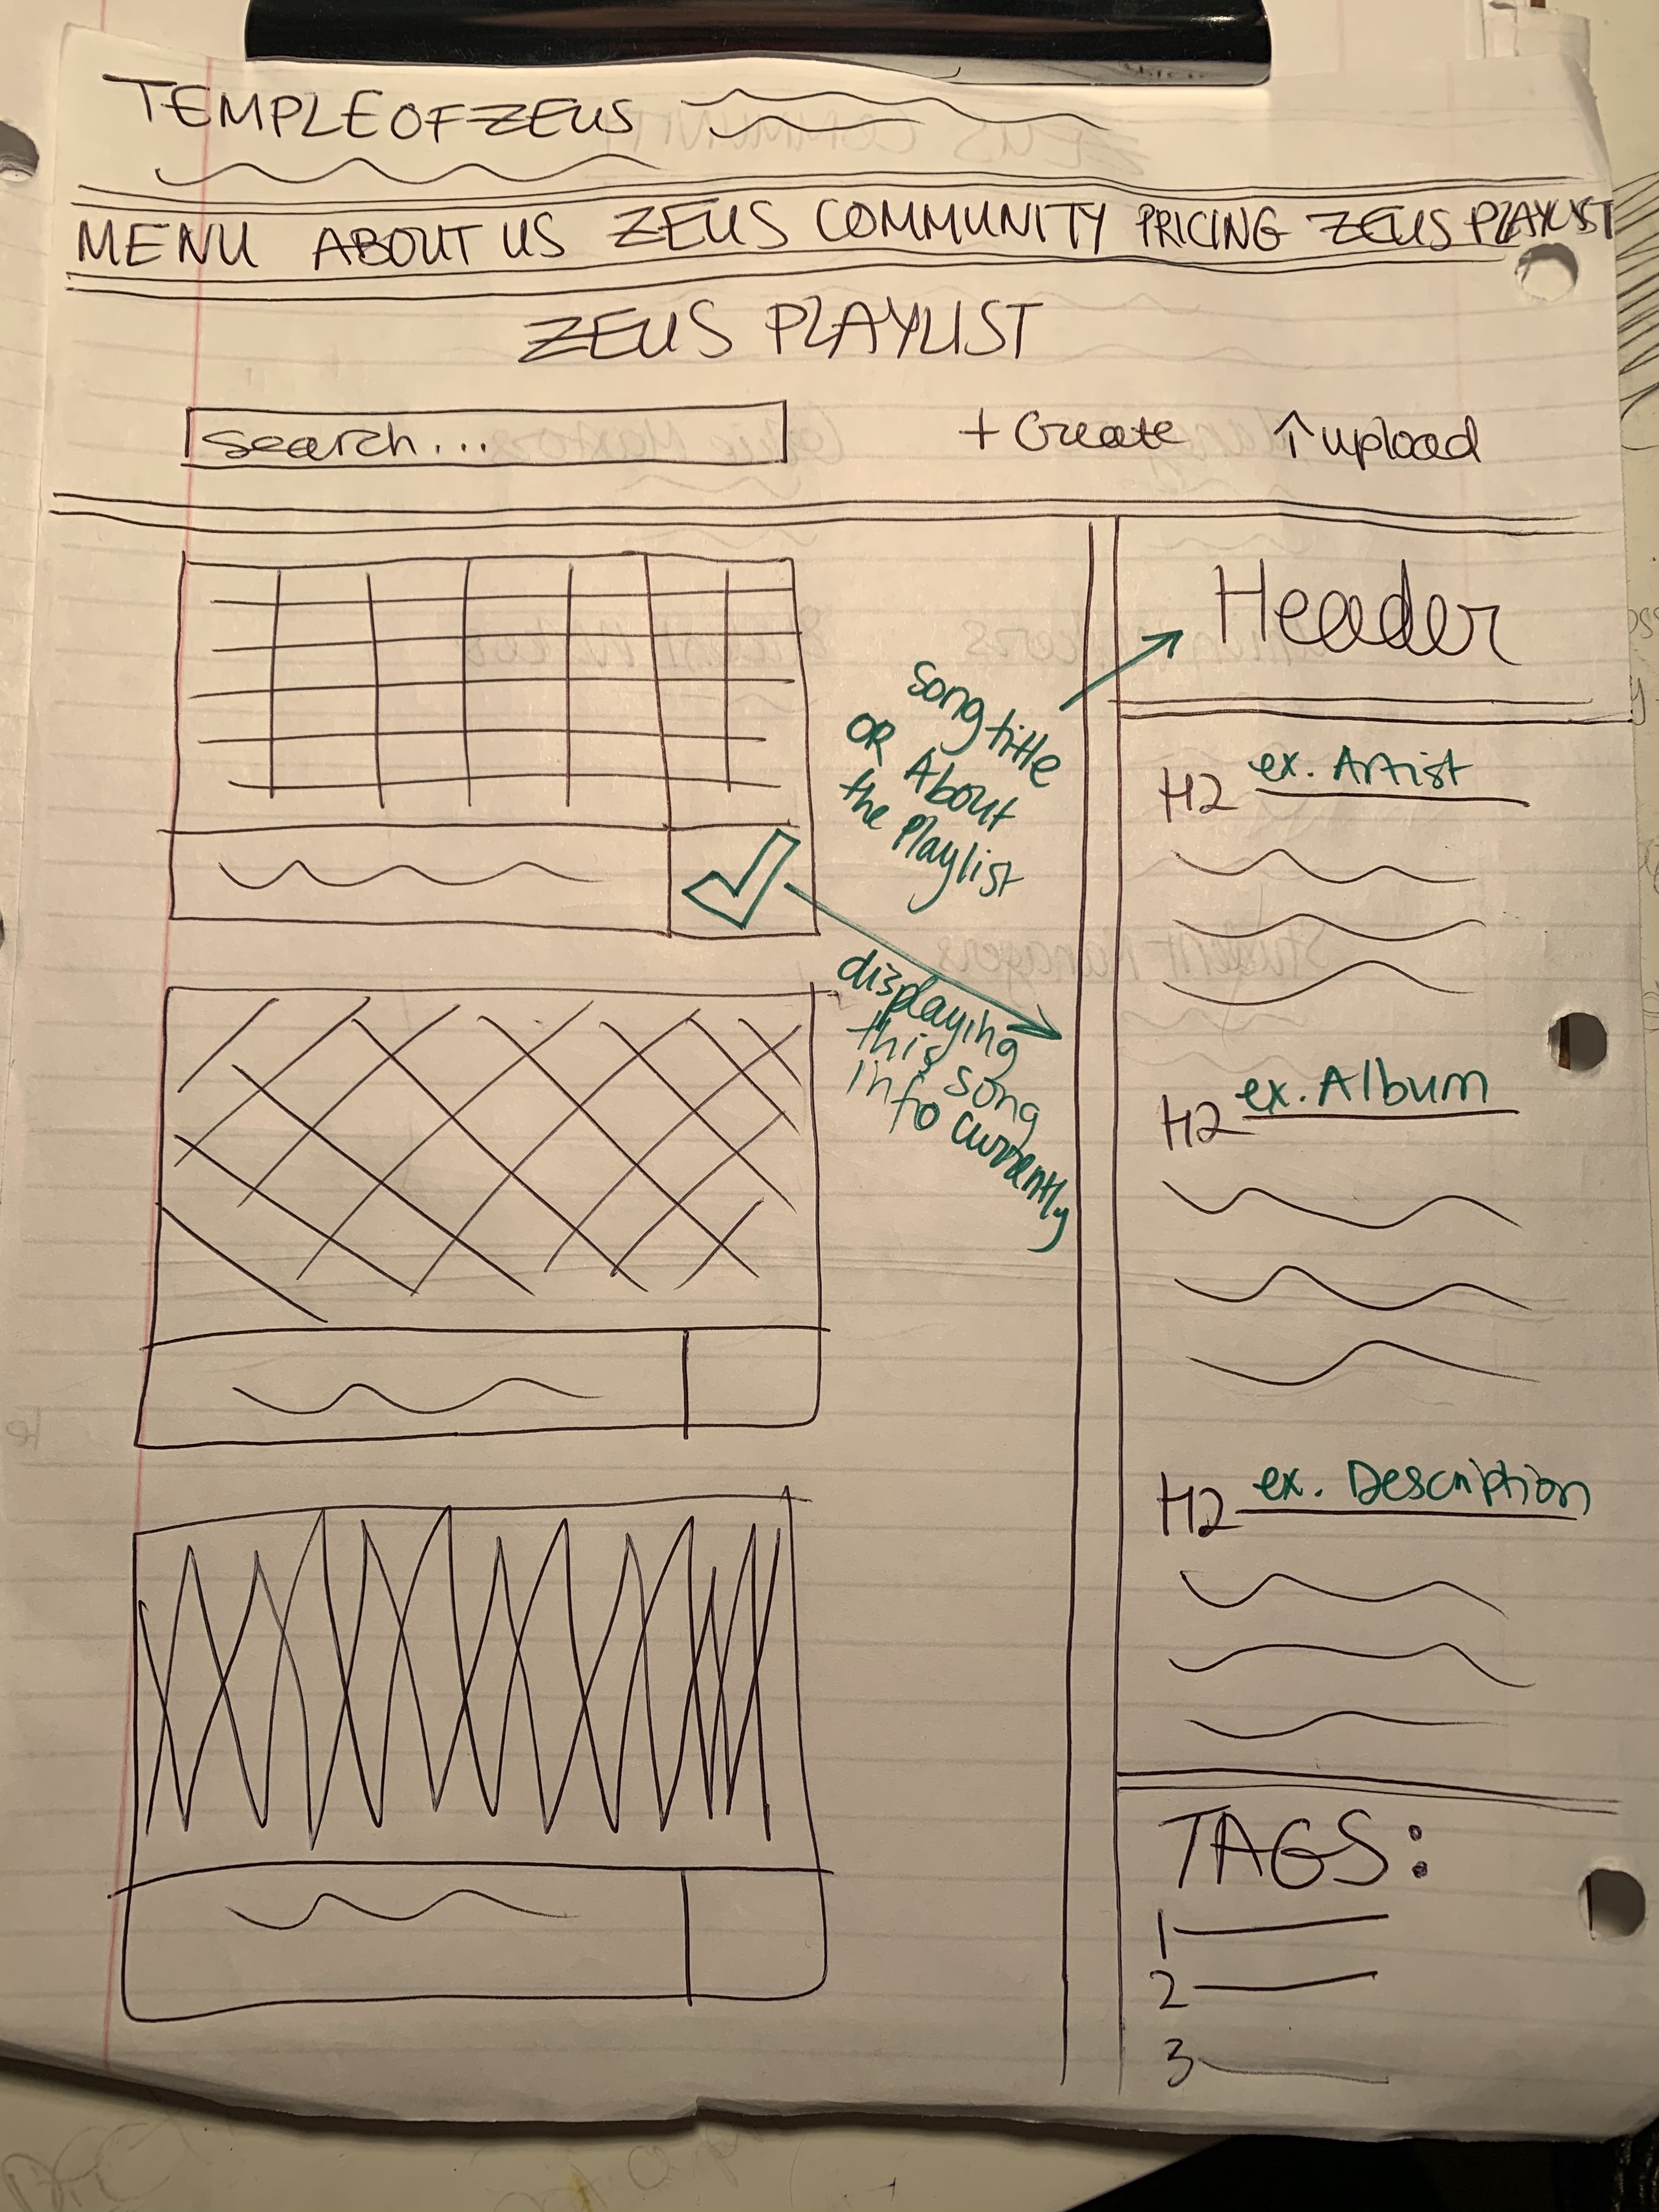 TEMPLE OF ZEUS
MENU ABOUT US ZEUS COMMUNITY PRICING ZEUS PLAYLIST
ZEUS PLAYLIST
search...
+ Create ↑ upload
song title
OR About
the Playlist
displaying
this song
info currently
Header
H2 ex. Artist
H2 ex. Album
H2 ex. Description
TAGS:
1
2
3